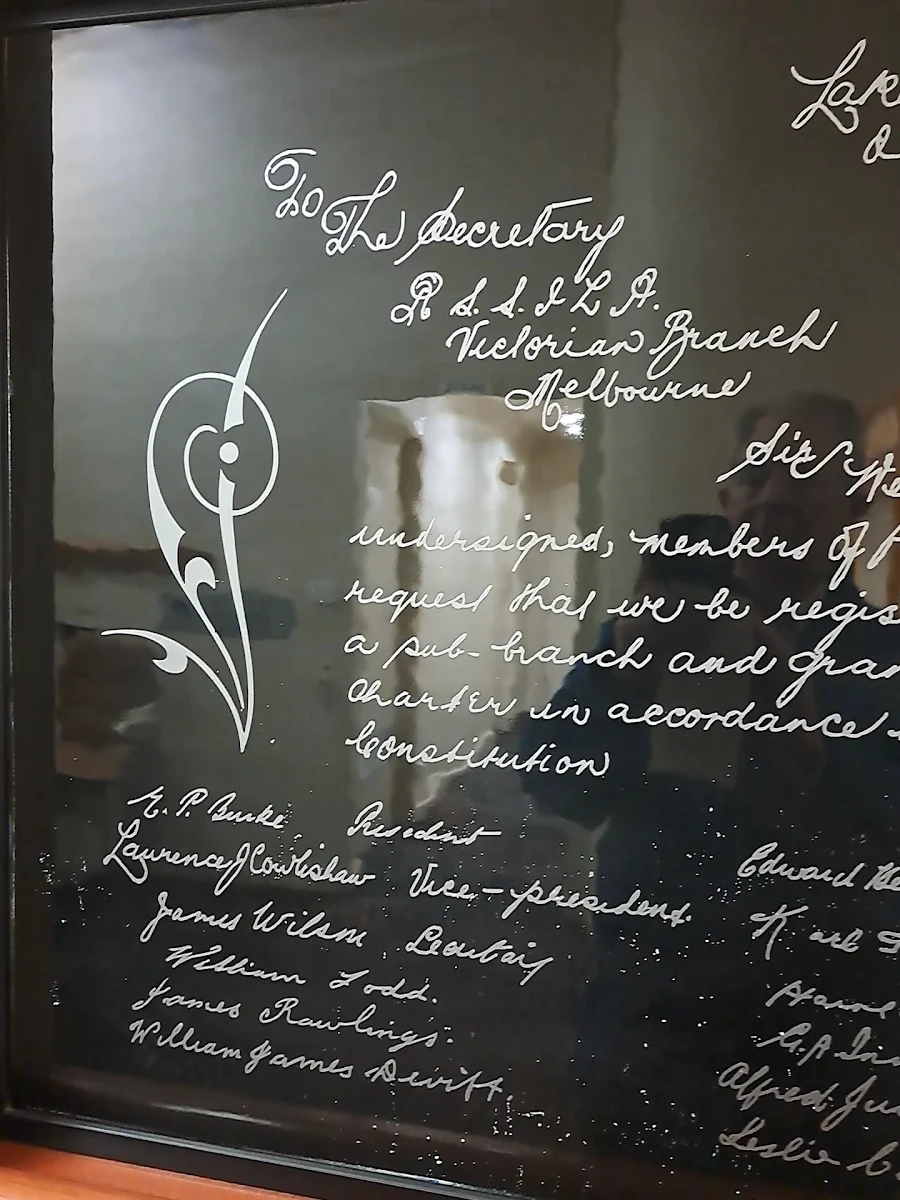 Lak
O
To
The Secretary
R S. S. I L A.
Victorian Branch
Melbourne
Sir We
undersigned, members of
request that we be regis
a sub-branch and gran
Charter in accordance
Constitution
E. P. Burke President
Laurence J Cowlishaw Vice-president.
James Wilson Secretary
William Todd.
James Rawlings.
William James Dewitt.
Edward
Karl
Harol
G. A
Alfred Ju
Leslie